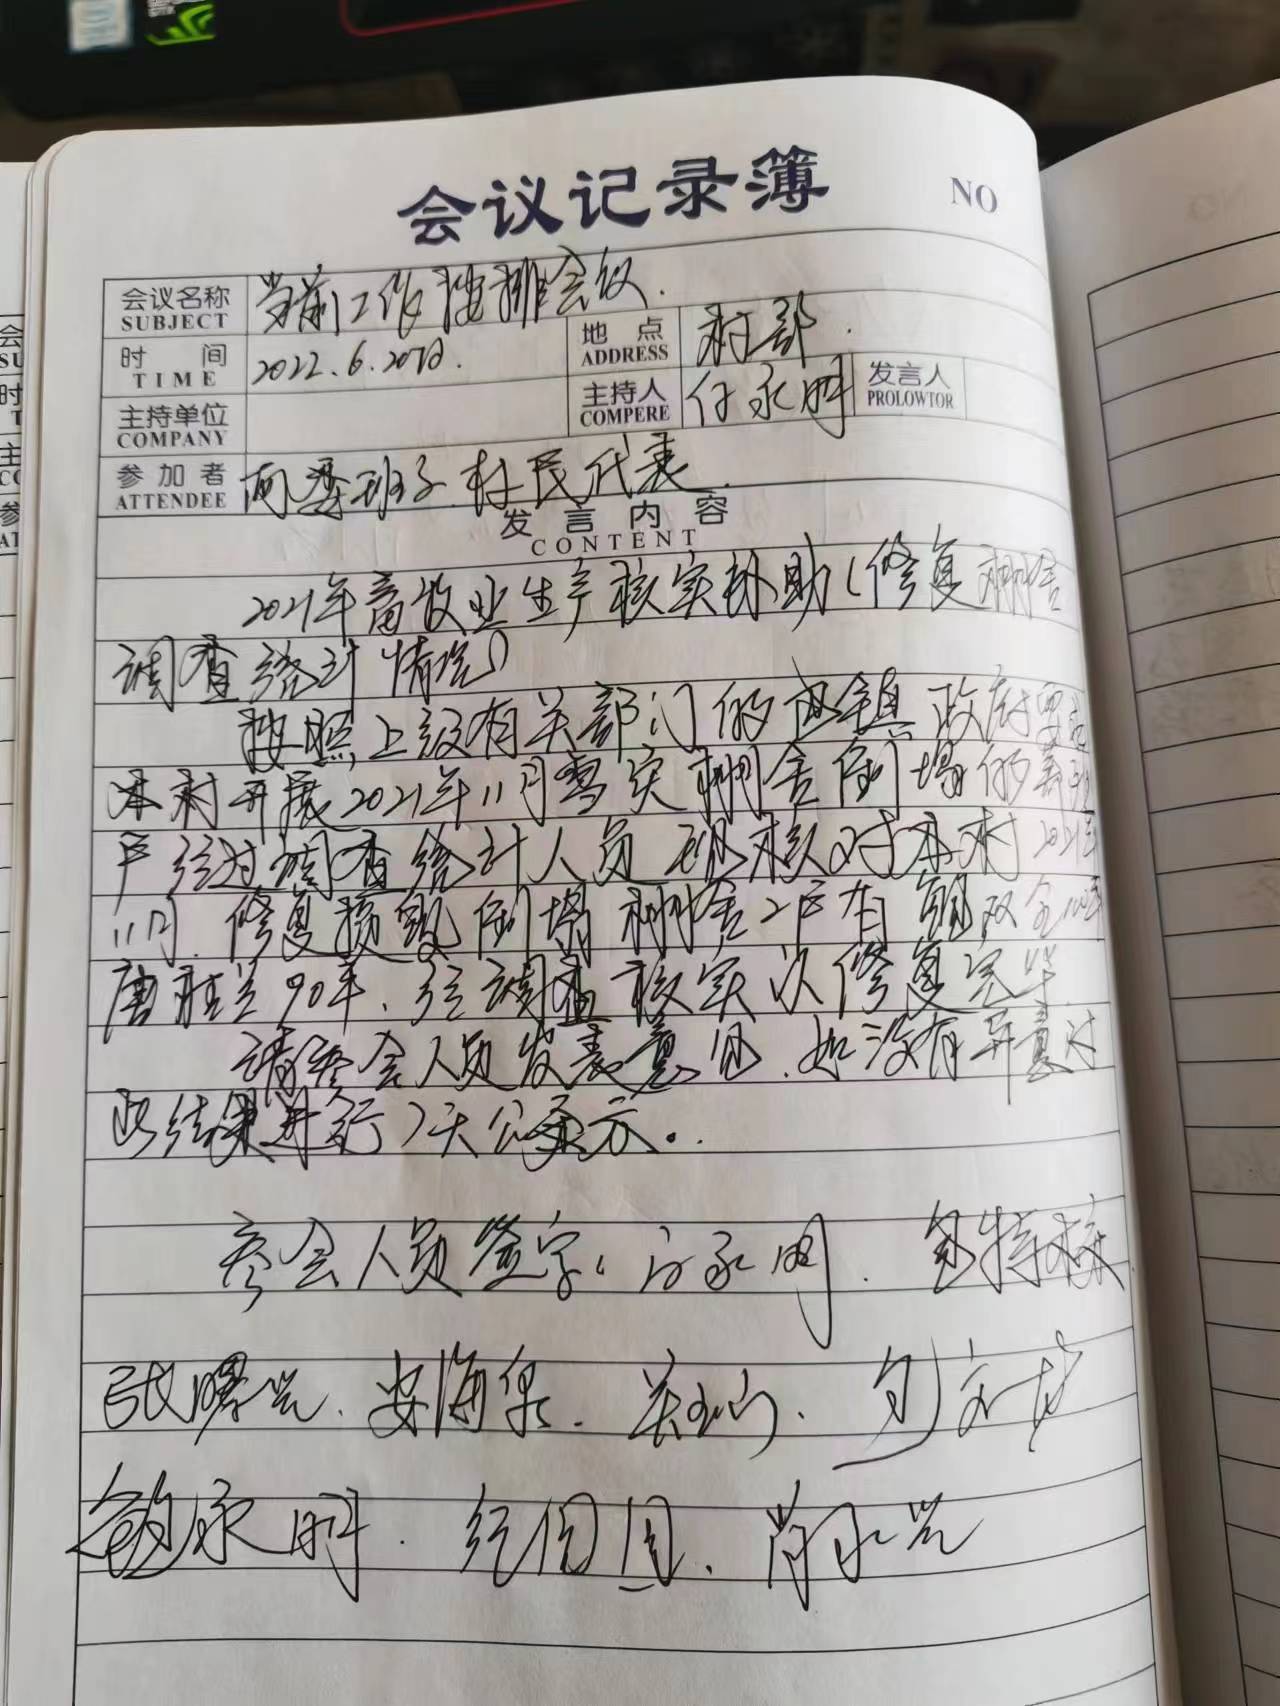 会议记录簿
NO
会议名称 当前工作安排会议.
SUBJECT
时间 2022.6.20日.
TIME
地点 村部.
ADDRESS
主持单位
COMPANY
主持人 付永明
COMPERE
发言人
PROLOWTOR
参加者 两委班子.村民代表.
ATTENDEE
发言内容
CONTENT
2021年畜牧业生产核实补助(修复棚舍
调查统计情况)
按照上级有关部门的 镇政府要求
本村开展2021年11月雪灾棚舍倒塌的
户经过调查统计人员 核对本村2021年
11月.修复损毁倒塌棚舍2户有 双全
唐桂兰90平.经调查核实次修复完毕.
请参会人员发表意见.如没有异意对
此结果进行7天公示.
参会人员签字: 付永明. 包特格
张曙光.安海泉. 关 山. 包文龙
永明. 团.肖永光